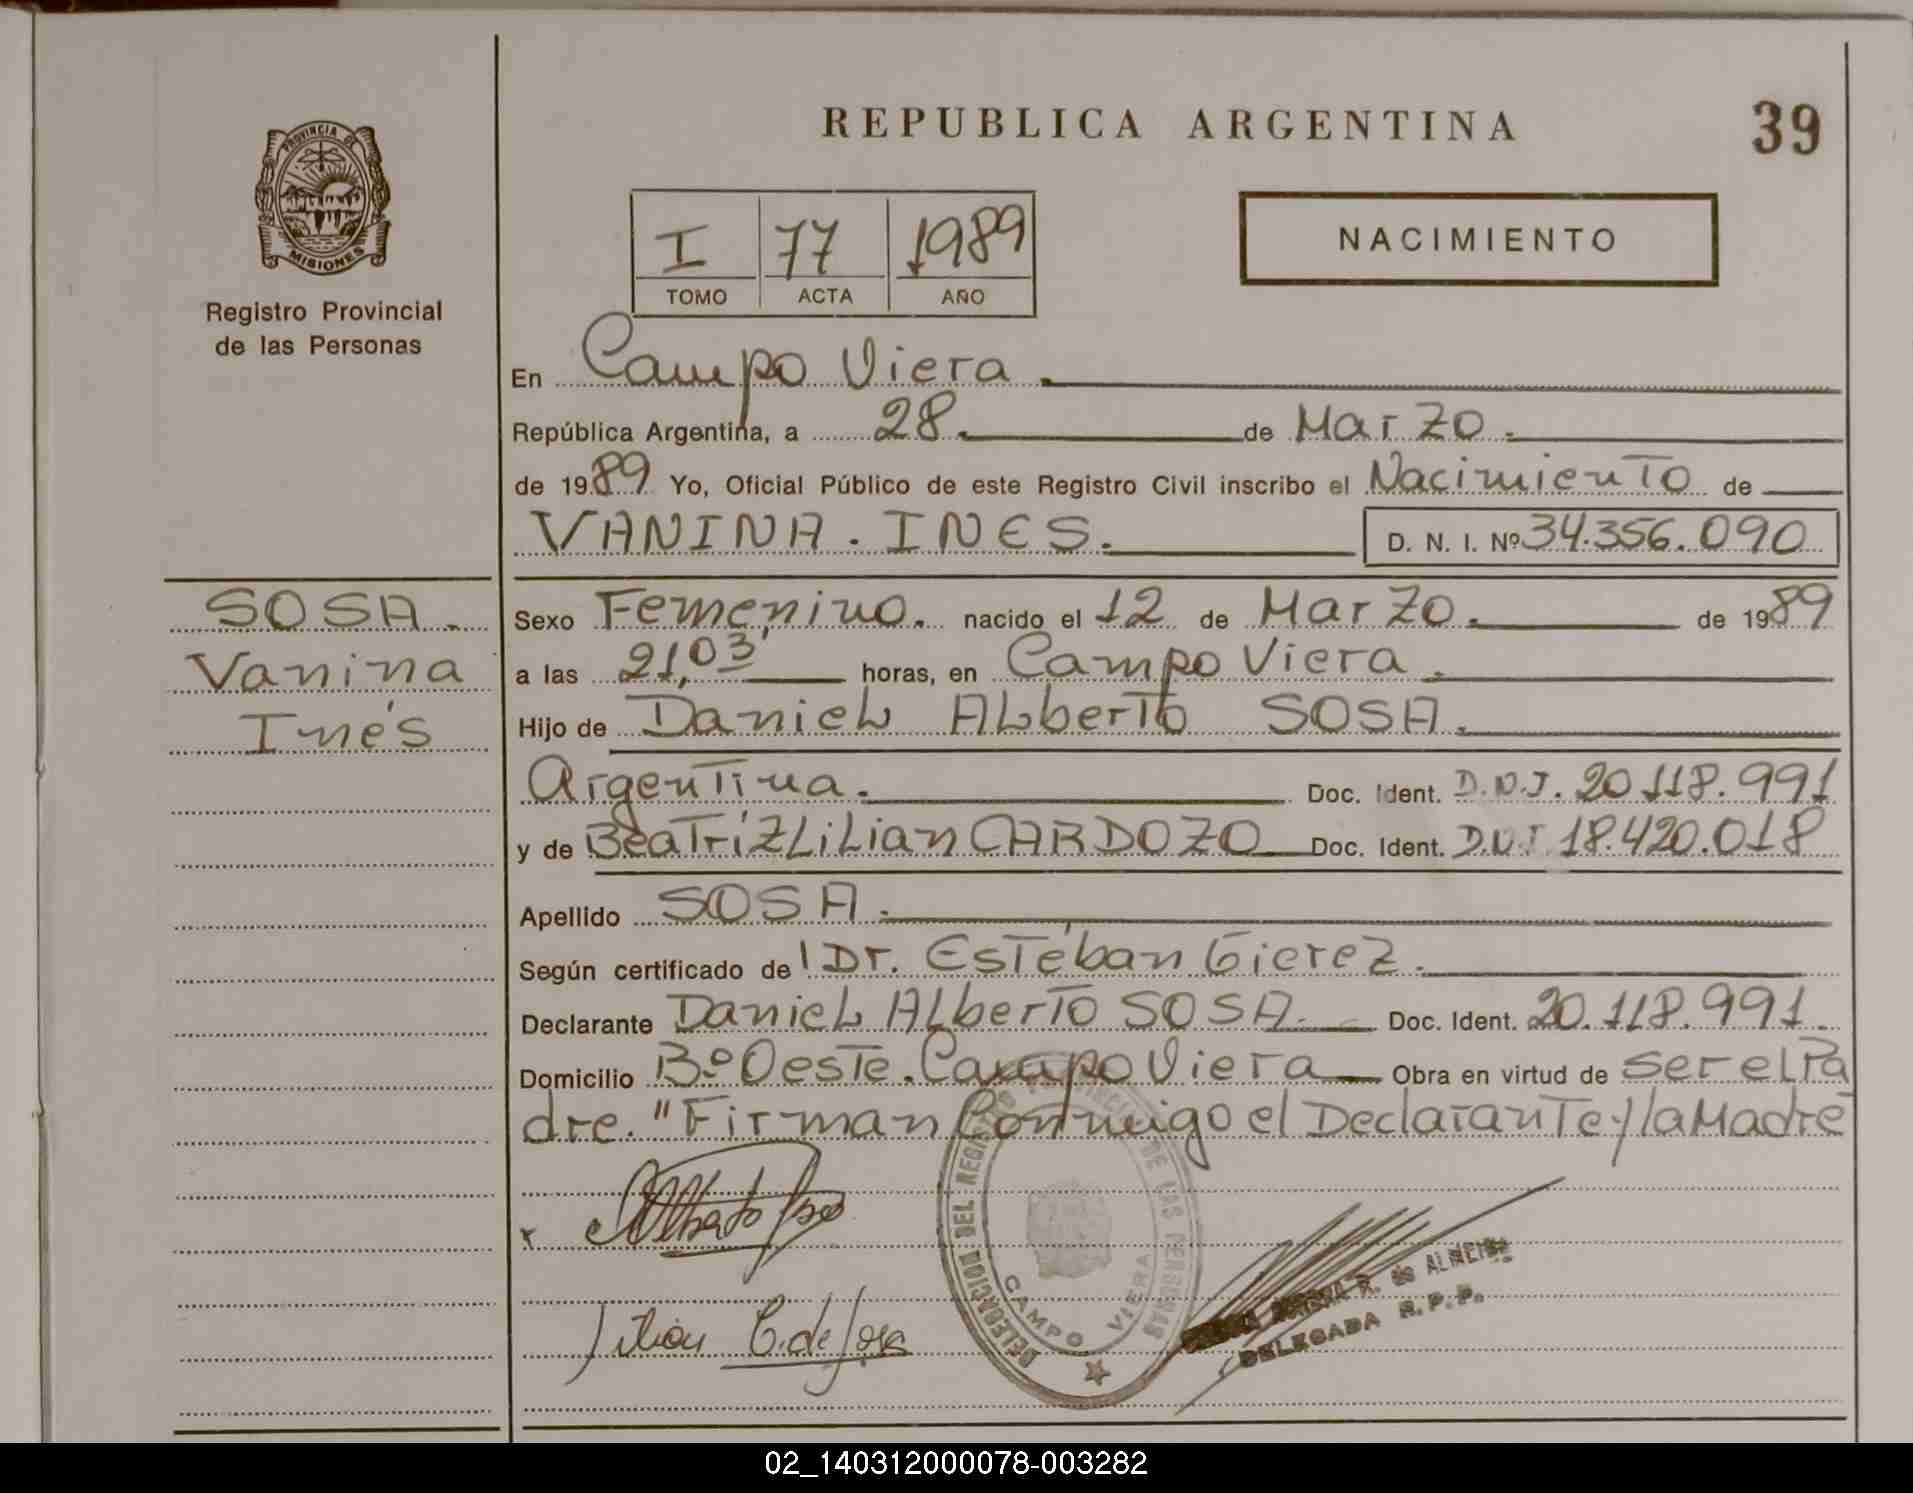 REPUBLICA ARGENTINA
39
PROVINCIA DE
MISIONES
Registro Provincial
de las Personas
I 77 1989
TOMO ACTA AÑO
NACIMIENTO
En Campo Viera.
República Argentina, a 28. de Marzo.
de 1989 Yo, Oficial Público de este Registro Civil inscribo el Nacimiento de
VANINA. INES. D. N. I. Nº 34.356.090
SOSA.
Vanina
Inés
Sexo Femenino. nacido el 12 de Marzo. de 1989
a las 21,03 horas, en Campo Viera.
Hijo de Daniel Alberto SOSA.
Argentina. Doc. Ident. D.N.I. 20.118.991
y de Beatríz Lilian CARDOZO Doc. Ident. D.N.I. 18.420.018
Apellido SOSA.
Según certificado de Dr. Estéban Gierez.
Declarante Daniel Alberto SOSA. Doc. Ident. 20.118.991.
Domicilio Bº Oeste. Campo Viera Obra en virtud de ser el Pa
dre. "Firman Conmigo el Declarante y la Madre
x Alberto Sosa
Lilian C. de Sosa
DELEGACION DEL REGISTRO PROVINCIAL DE LAS PERSONAS
CAMPO VIERA
R. de ALMEIDA
DELEGADA R.P.P.
02_140312000078-003282